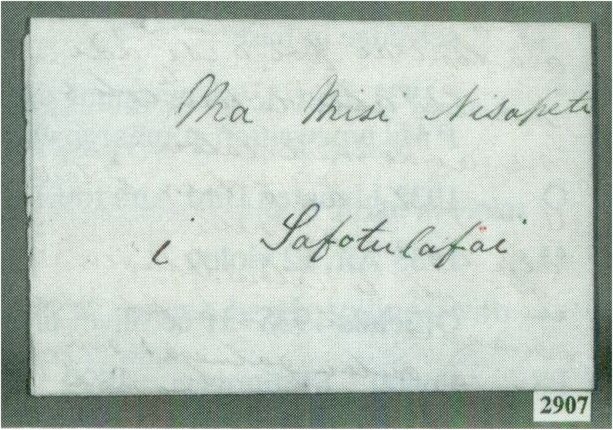 Ma Misi Nisapeti
i Safotulafai
2907